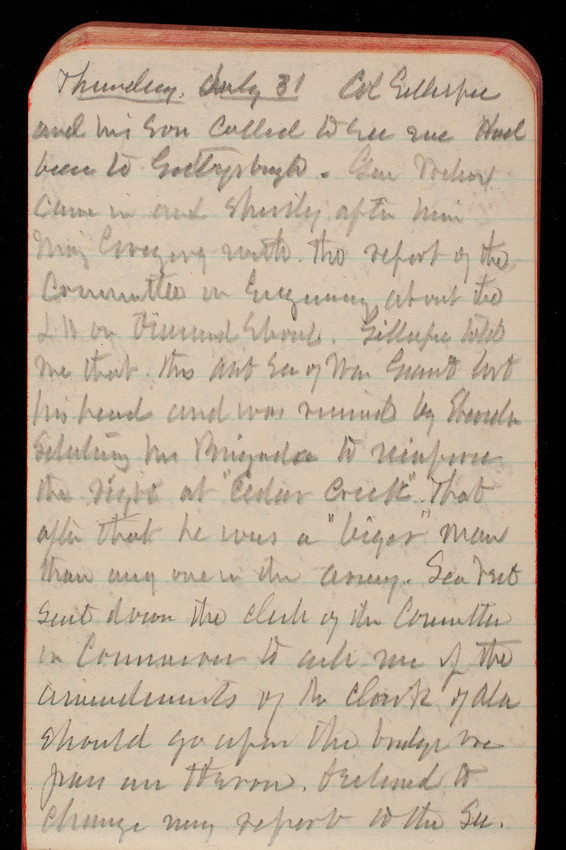 Thursday. July 31 Col Gillespie
and his Son Called to see me Had
been to Gettysburgh. Gen
Came in and Shortly after him
Maj with the report of the
Committee on Enquiry about the
L H on Diamond Shoals. Gillespie told
me that the Ast Sec of War Grant lost
his head and was by Sheridan
Selecting his Brigade to reinforce
the right at "Cedar Creek" That
after that he was a "biger" man
than any one in the army. Sen
Sent down the clerk of the Committee
on Commerce to ask me if the
amendments of the of Ala
should go upon the bridge we
pass on. declined to
change my report to the Sec.